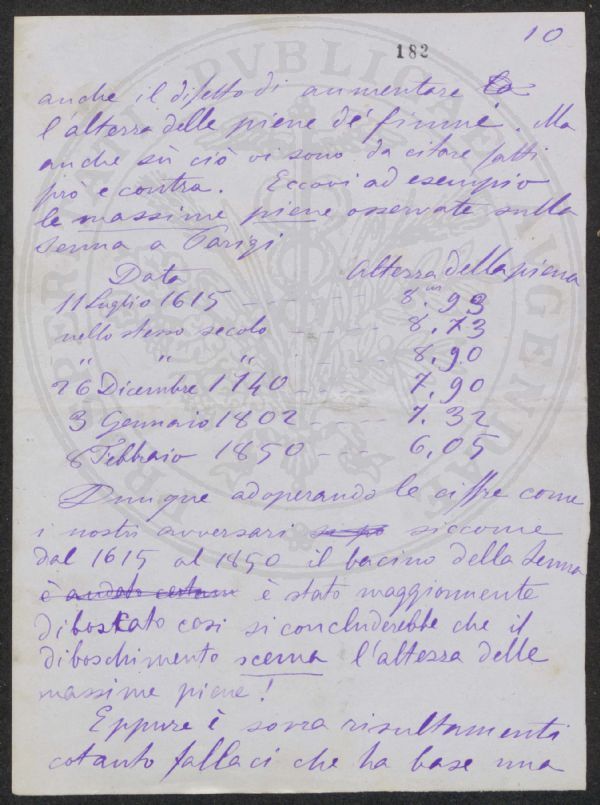 10
182
anche il difetto di aumentare la
l'altezza delle piene de' fiumi. Ma
anche sù ciò vi sono da citare fatti
prò e contra. Eccovi ad esempio
le massime piene osservate sulla
Senna a Parigi
Data Altezza della piena
11 Luglio 1615 - - - - - 8,m 93
nello stesso secolo - - - - - 8,73
" " " 8,90
26 Dicembre 1740 - - - 7,90
3 Gennaio 1802 - - - - 7,32
8 Febbraio 1850 - - - 6,05
Dunque adoperando le ciffre come
i nostri avversari si può siccome
dal 1615 al 1850 il bacino della Senna
è andato certam è stato maggiormente
diboscato così si concluderebbe che il
diboschimento scema l'altezza delle
massime piene!
Eppure è sovra risultamenti
cotanto fallaci che ha base una